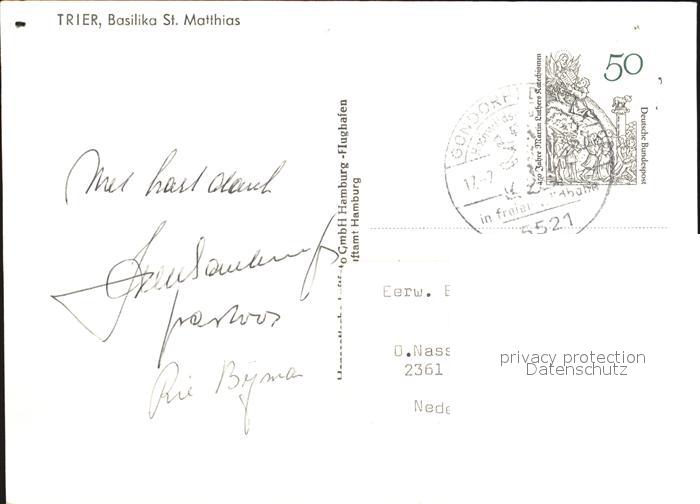 TRIER, Basilika St. Matthias
50
Deutsche Bundespost
450 Jahre Martin Luthers Katechismen
GONDORF
in freier
5521
Met hart dank
pastoor
Rie Bijman
GmbH Hamburg-Flughafen
ftamt Hamburg
Eerw.
O.Nass
2361
Nede
privacy protection
Datenschutz